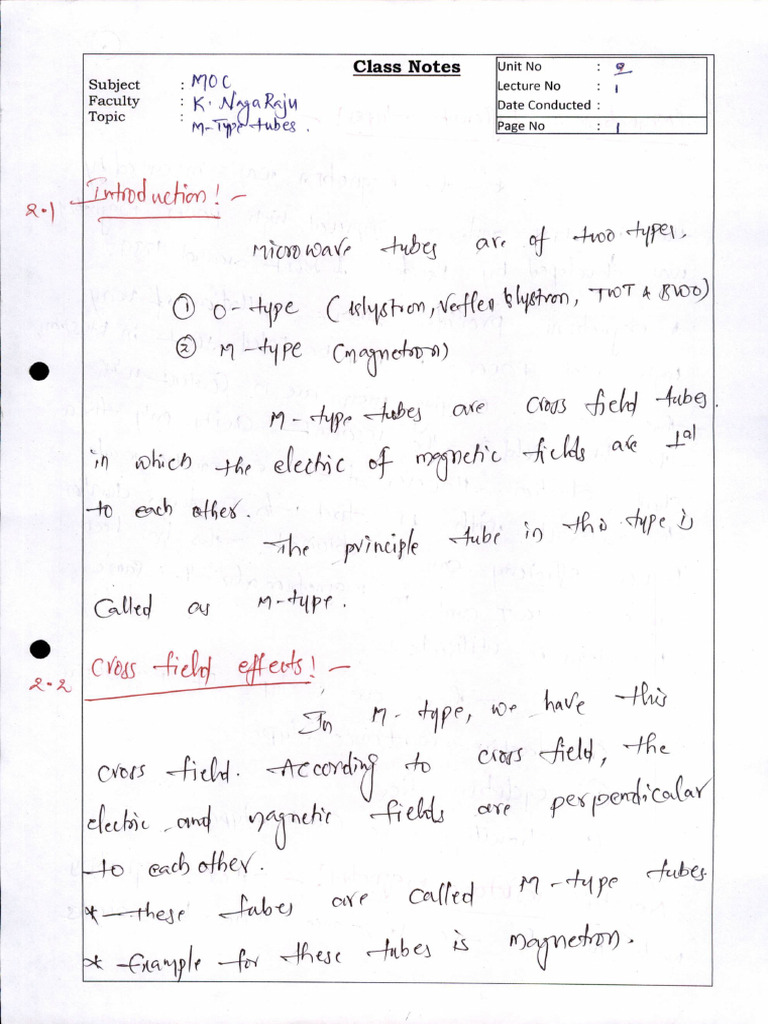 Class Notes
Subject : MOC
Faculty : K. NagaRaju
Topic : M-Type tubes.
Unit No : 2
Lecture No : 1
Date Conducted :
Page No : 1
2.1 Introduction! -
Microwave tubes are of two types.
① O-type (klystron, reflex klystron, TWT & BWO)
② M-type (magnetron)
M-type tubes are cross field tubes.
in which the electric of magnetic fields are ⊥al
to each other.
The principle tube in this type, is
Called as M-type.
2.2 Cross field effects! -
In M-type, we have this
cross field. According to cross field, the
electric and magnetic fields are perpendicalar
to each other.
* These tubes are called M-type tubes.
* Example for these tubes is magnetron.